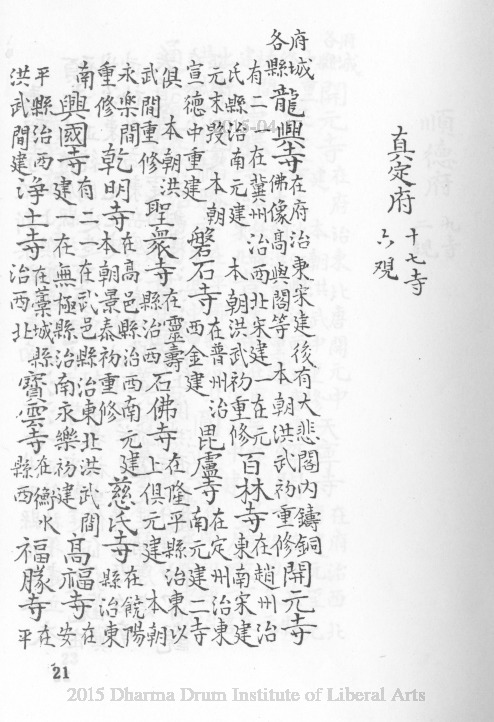 真定府 十七寺 六观
府城各縣 龍興寺 在府治東宋建後有大悲閣内鑄銅佛像高與閣等 本朝洪武初重修 開元寺
有二一在冀州治西北宋建一在元氏縣治南元建 本朝洪武初重修 百林寺 在趙州治東南宋建
元末毀 本朝宣德中重建 磐石寺 在普州治西金建 毘盧寺 在定州治東南元建二寺
俱 本朝洪武間重修 聖衆寺 在靈壽縣治西 石佛寺 在隆平縣治東以上俱元建 本朝
永樂間重修 乾明寺 在高邑縣治西南元建本朝景泰初重修 慈氏寺 在饒陽縣治東
南 興國寺 有二一在武邑縣治東北洪武間建一在無極縣治南永樂初建 高福寺 在安
平縣治西洪武間建 淨土寺 在藁城縣治西北 寶雲寺 在衡水縣西 福勝寺 在平
21
2015 Dharma Drum Institute of Liberal Arts